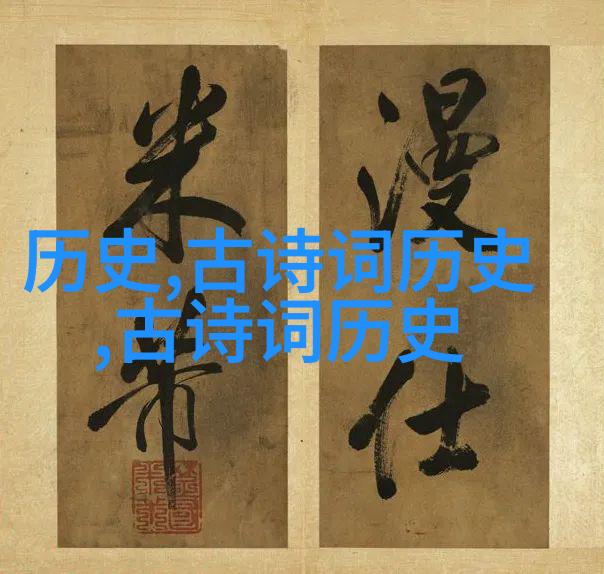 历史,古诗词历史
,古诗词历史
漫仕
米芾